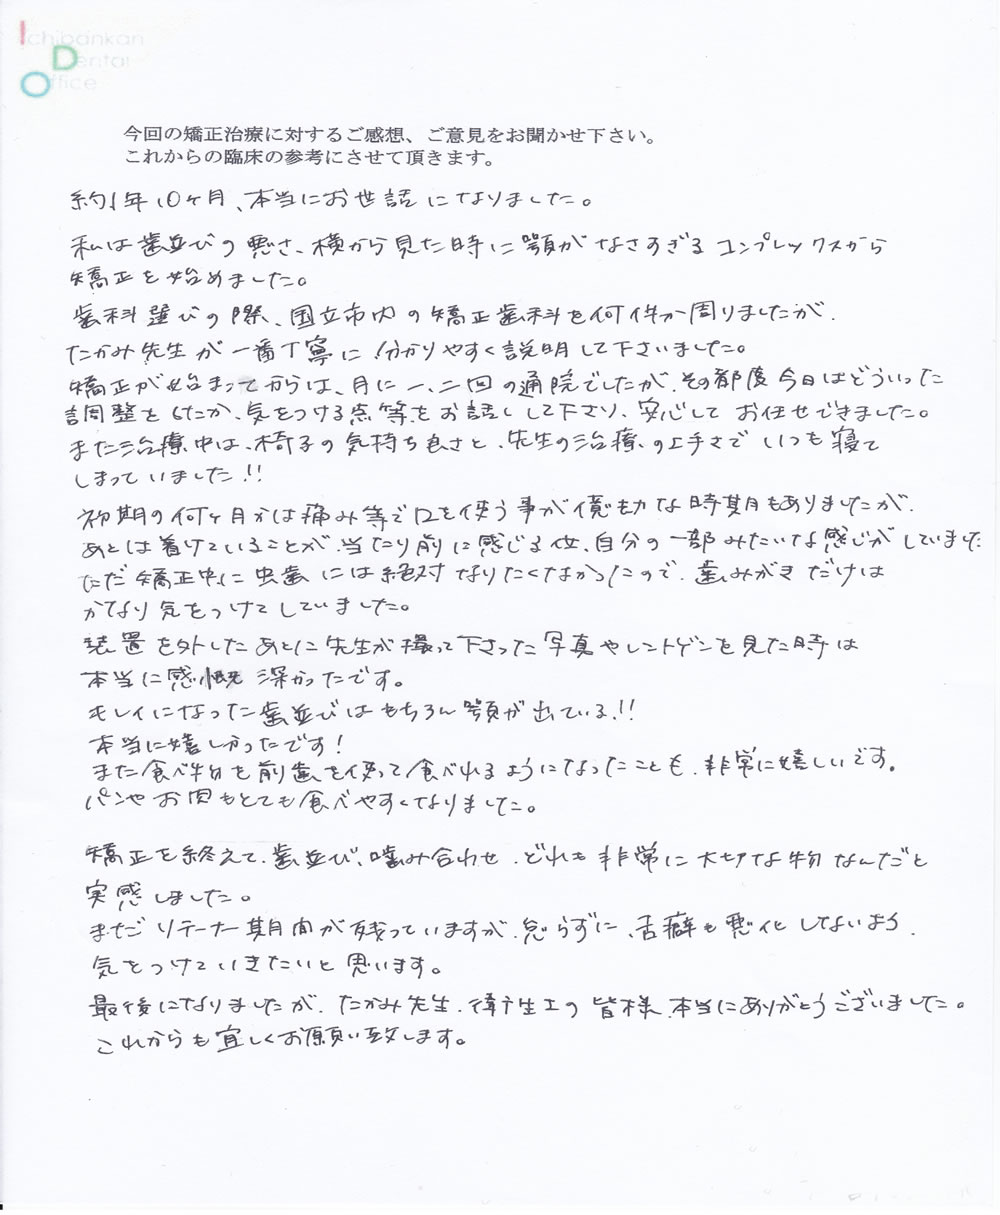 Ichibankan
Dental
Office
今回の矯正治療に対するご感想、ご意見をお聞かせ下さい。
これからの臨床の参考にさせて頂きます。
約1年10ヶ月、本当にお世話になりました。
私は歯並びの悪さ、横から見た時に顎がなさすぎるコンプレックスから
矯正を始めました。
歯科選びの際、国立市内の矯正歯科を何件か周りましたが、
たかみ先生が一番丁寧に分かりやすく説明して下さいました。
矯正が始まってからは、月に一、二回の通院でしたが、その都度今日はどういった
調整をしたか、気をつける点等をお話しして下さり、安心してお任せできました。
また治療中は、椅子の気持ち良さと、先生の治療の上手さでいつも寝て
しまっていました!!
初期の何ヶ月かは痛み等で口を使う事が億劫な時期もありましたが、
あとは着けていることが、当たり前に感じる位、自分の一部みたいな感じがしていました
ただ矯正中に虫歯には絶対なりたくなかったので、歯みがきだけは
かなり気をつけてしていました。
装置を外したあとに先生が撮って下さった写真やレントゲンを見た時は
本当に感慨深かったです。
キレイになった歯並びはもちろん顎が出ている!!
本当に嬉しかったです!
また食べ物を前歯を使って食べれるようになったことも、非常に嬉しいです。
パンやお肉もとても食べやすくなりました。
矯正を終えて、歯並び、噛み合わせ、どれも非常に大切な物なんだと
実感しました。
まだリテーナー期間が残っていますが、怠らずに、舌癖も悪化しないよう、
気をつけていきたいと思います。
最後になりましたが、たかみ先生、衛生士の皆様、本当にありがとうございました。
これからも宜しくお願い致します。